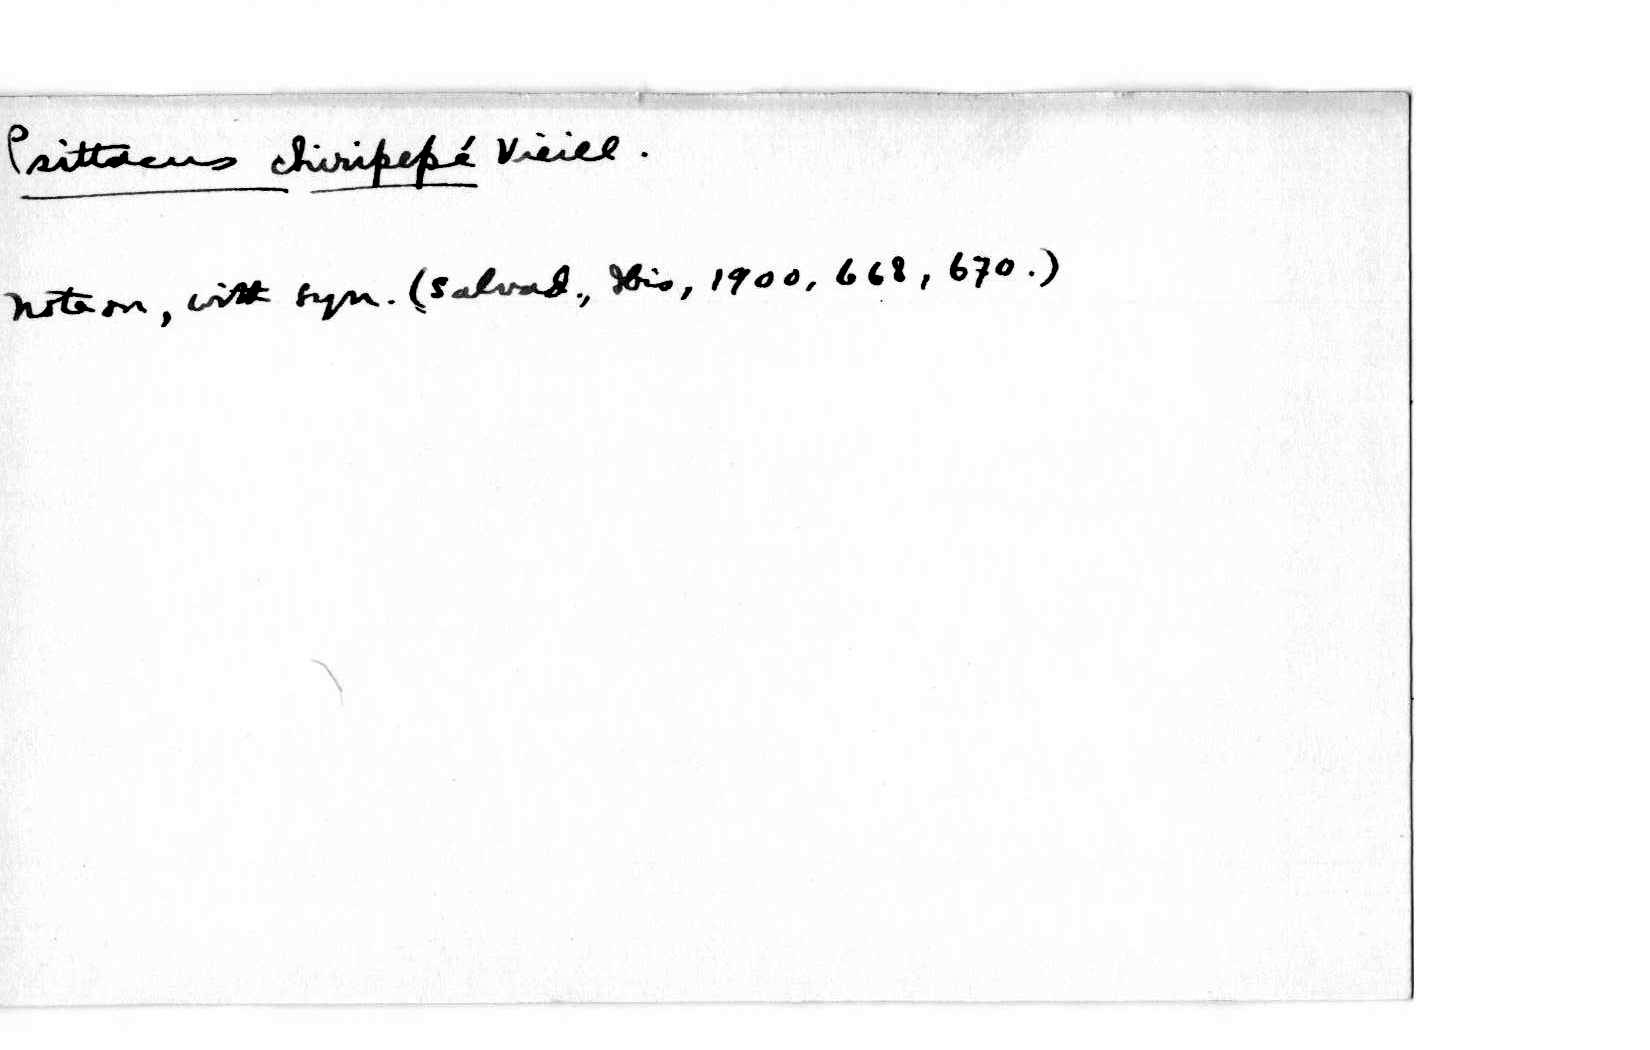 Psittacus chiripepé Vieill.
note on, with syn. (Salvad., Ibis, 1900, 668, 670.)